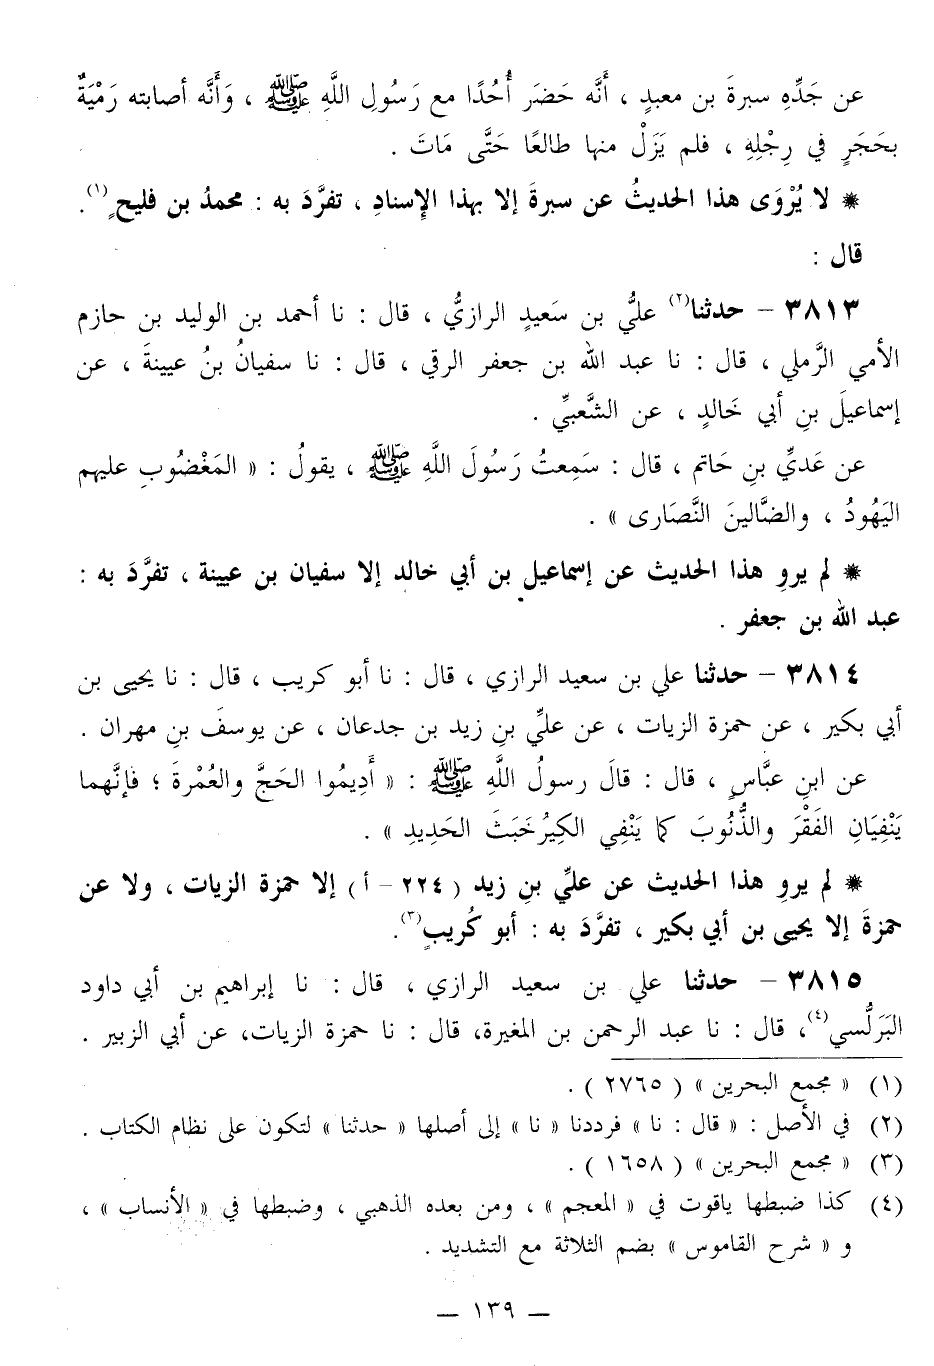 عن جَدِّهِ سبرةَ بن معبدٍ ، أَنَّه حَضَر أُحُدًا مع رَسُولِ اللَّهِ ﷺ ، وَأَنَّه أصابته رَمْيَةٌ
بحَجَرٍ في رِجْلِهِ ، فلم يَزَلْ منها طالعًا حَتَّى مَاتَ .
* لا يُرْوَى هذا الحديثُ عن سبرةَ إلا بهذا الإسنادِ ، تفرَّدَ به : محمدُ بن فليحٍ(١).
قال :
٣٨١٣ – حدثنا(٢) عليُّ بن سَعيدٍ الرازيُّ ، قال : نا أحمد بن الوليد بن حازم
الأمي الرَّملي ، قال : نا عبد الله بن جعفر الرقي ، قال : نا سفيانُ بنُ عيينةَ ، عن
إسماعيلَ بنِ أبي خَالدٍ ، عن الشَّعبيِّ .
عن عَديِّ بنِ حَاتم ، قال : سَمِعتُ رَسُولَ اللَّهِ ﷺ ، يقولُ : « المَغْضُوبِ عليهم
اليَهُودُ ، والضَّالينَ النَّصَارى » .
* لم يروِ هذا الحديث عن إسماعيل بن أبي خالد إلا سفيان بن عيينة ، تفرَّدَ به :
عبد الله بن جعفر .
٣٨١٤ – حدثنا علي بن سعيد الرازي ، قال : نا أبو كريب ، قال : نا يحيى بن
أبي بكير ، عن حمزة الزيات ، عن عليِّ بنِ زيد بن جدعان ، عن يوسفَ بنِ مهران .
عن ابنِ عبَّاسٍ ، قال : قالَ رسولُ اللَّهِ ﷺ : « أَدِيمُوا الحَجَّ والعُمْرةَ ؛ فإنَّهما
يَنْفِيَانِ الفَقْرَ والذُّنُوبَ كما يَنْفِي الكِيرُ خَبَثَ الحَدِيدِ » .
* لم يروِ هذا الحديث عن عليِّ بنِ زيد ( ٢٢٤ – أ ) إلا حمزة الزيات ، ولا عن
حمزةَ إلا يحيى بن أبي بكير ، تفرَّدَ به : أبو كُريبٍ(٣).
٣٨١٥ – حدثنا علي بن سعيد الرازي ، قال : نا إبراهيم بن أبي داود
البَرَلُّسي(٤)، قال : نا عبد الرحمن بن المغيرة، قال : نا حمزة الزيات، عن أبي الزبير .
(١) « مجمع البحرين » ( ٢٧٦٥ ) .
(٢) في الأصل : « قال : نا » فرددنا « نا » إلى أصلها « حدثنا » لتكون على نظام الكتاب .
(٣) « مجمع البحرين » ( ١٦٥٨ ) .
(٤) كذا ضبطها ياقوت في « المعجم » ، ومن بعده الذهبي ، وضبطها في « الأنساب » ،
و « شرح القاموس » بضم الثلاثة مع التشديد .
— ١٣٩ —